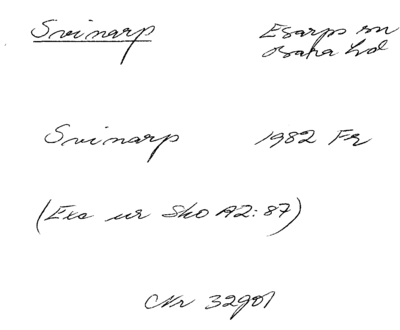 Svinarp Esarps sn
Bara hd
Svinarp 1982 Fr
(Exc ur Sko A2:87)
Nr 32901